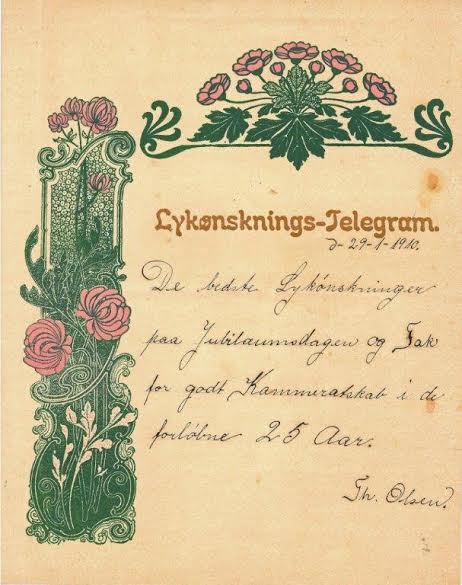 Lykønsknings-Telegram.
d. 29-1-1910.
De bedste Lykönskninger
paa Jubilæumsdagen og Tak
for godt Kammeratskab i de
forløbne 25 Aar.
Th. Olsen.